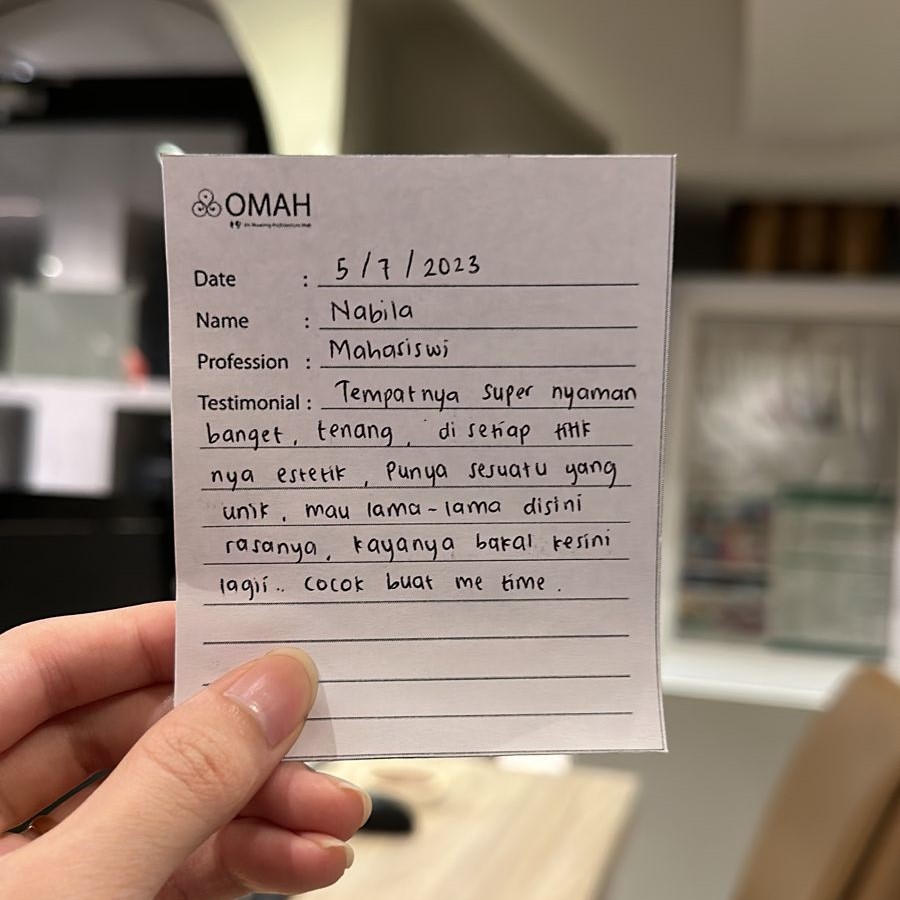 OMAH
Date : 5/7/2023
Name : Nabila
Profession : Mahasiswi
Testimonial : Tempatnya super nyaman
banget, tenang, di setiap titik
nya estetik, Punya sesuatu yang
unik, mau lama-lama disini
rasanya, kayanya bakal kesini
lagii.. cocok buat me time.